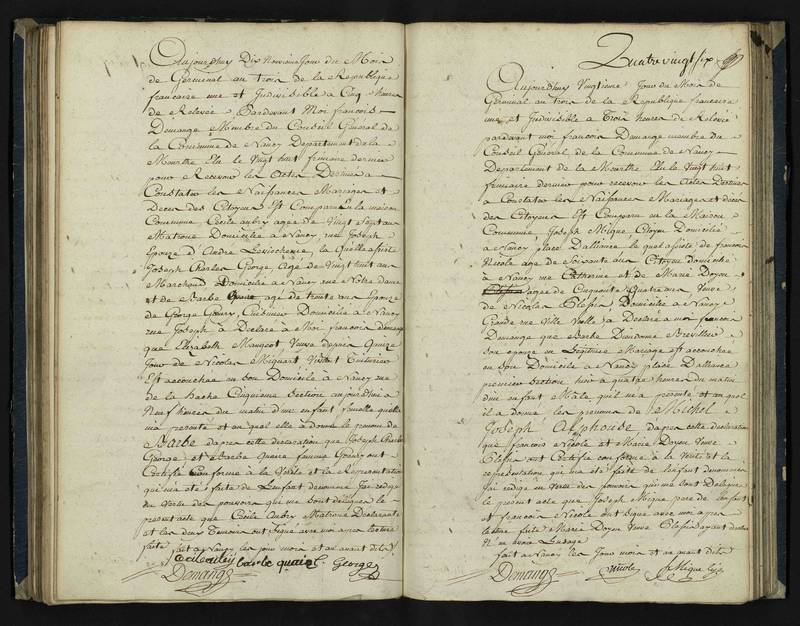 Aujourdhuy Dix Neuvieme Jour du Mois
de Germinal an trois de la Republique
francaise une et Indivisible a Cinq heures
de Relevée Pardevant Moi francois
Demange Membre du Conseil Général de
la Commune de Nancy Departement de la
Meurthe Elu le Vingt huit frimaire dernier
pour Recevoir les Actes Destinés a
Constater les Naissances Mariages et
Deces des Citoyens Est Comparue En la maison
Commune Cecile aubry agée de Vingt ans
Matrone Domiciliée a Nancy, rue Joseph
Epouse d'Andre la quelle assistée
Joseph Charles George, agé de Vingt huit ans
Marchand Domicilié a Nancy rue Notre dame
et de Barbe agée de trente ans Epouse
de George Domiciliée a Nancy
rue Joseph a Declaré a Moi francois demange
que Elizabeth Mangeot Veuve depuis Quinze
Jour de Nicolas Miquart Vivant Couturier
Est accouchée en son Domicile a Nancy rue
de la hache Cinquieme Section aujourdhui a
Neuf heures du matin d'un enfant femelle quelle
ma presenté et au quel elle a donné le prenom de
Barbe dapres cette declaration que Joseph Charles
George et Barbe femme ont
Certifié Conforme a la Vérité et la Representation
qui ma été faite de l'enfant denommé Jai redigé
du Vertu des pouvoirs qui me sont delegués le
present acte que Cecile Aubry Matrone Declarante
et les deux Temoins ont Signé avec moi apres lecture
faite fait a Nancy les jour mois et an avant dits
barbe quaire George
Demange
Quatre vingt six
Aujourdhuy Vingtieme Jour du Mois de
Germinal an trois de la Republique francaise
une et Indivisible a Trois heures de Relevée
pardevant moi francois Demange membre du
Conseil Général de la Commune de Nancy
Departement de la Meurthe Elu le Vingt huit
frimaire dernier pour recevoir les Actes Destinés
a Constater les Naissances Mariages et décès
des Citoyens Est Comparu en la Maison
Commune Joseph Mique Citoyen Domicilié
a Nancy place Dalliance le quel assisté de francois
Nicole agé de Soixante ans Citoyen domicilié
a Nancy rue Catherine et de Marie Doyen
agée de Cinquante Quatre ans Veuve
de Nicolas Domiciliée a Nancy
Grande rue Ville Vielle, a Declaré a moi francois
Demange que Barbe
Son epouse en Legitime Mariage Est accouchée
en son Domicile a Nancy place Dalliance
premiere Section hier a quatre heures du matin
d'un enfant Male quil ma presenté et au quel
il a donné les prenoms de Michel
Joseph Alphonse dapres cette declaration
que francois Nicole et Marie Doyen Veuve
ont Certifié conforme a la Verité et la
representation qui ma été faite de lenfant denommé
jai redigé en Vertu des pouvoirs qui me sont Delegués
le present acte que Joseph Mique pere de lenfant
et francois Nicole ont Signé avec moi apres
lecture faite Marie Doyen Veuve ayant declaré
N'en avoir Lusage
fait a Nancy les Jour mois et an avant dits
Demange Nicole Mique